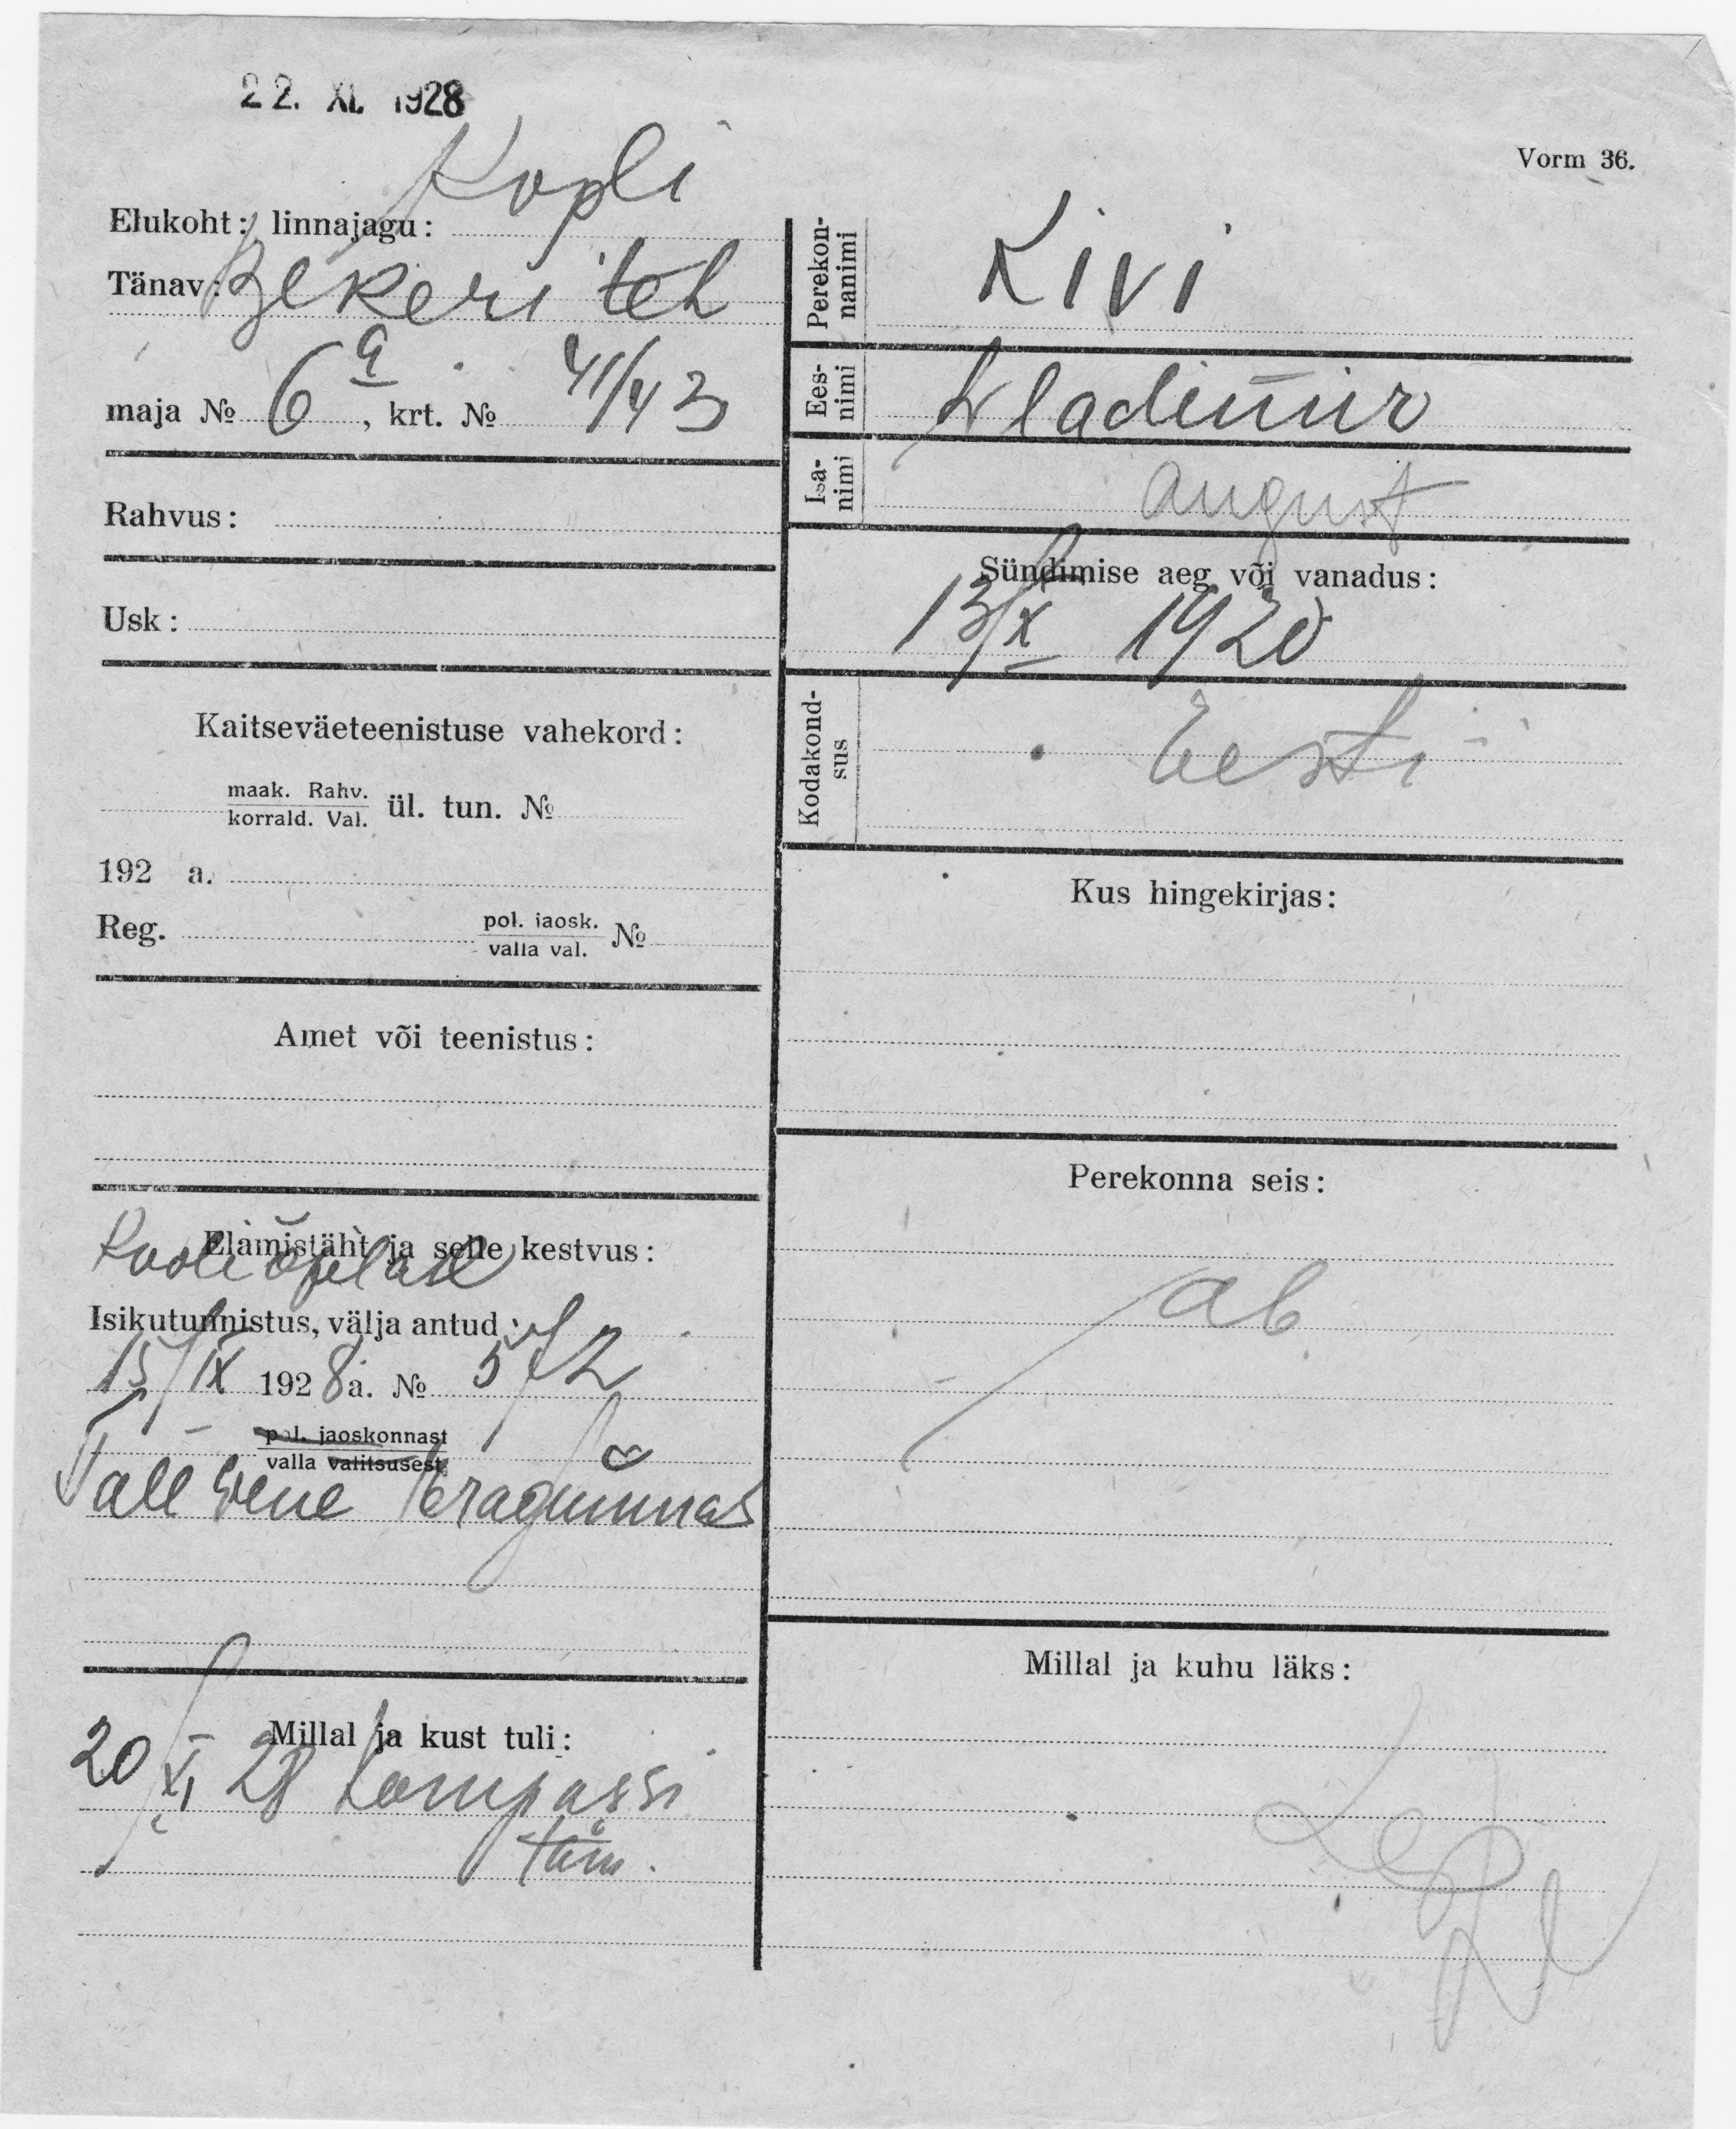 22. XI. 1928
Vorm 36.
Kopli
Elukoht: linnajagu:
Tänav: Bekeri teh
maja № 6a, krt. № 41/43
Rahvus:
Usk:
Kaitseväeteenistuse vahekord:
maak. Rahv.
korrald. Val. ül. tun. №
192 a.
Reg. pol. jaosk.
valla val. №
Amet või teenistus:
Elamistäht ja selle kestvus:
Kooliõpilase
Isikutunnistus, välja antud:
15/IX 1928 a. № 572
pol. jaoskonnast
valla valitsusest
Tall Vene Eragümnas
Millal ja kust tuli:
20/XI 28 Kompassi
tän.
Perekon-
nanimi Kivi
Ees-
nimi Wladimir
Isa-
nimi August
Sündimise aeg või vanadus:
13/X 1920
Kodakond-
sus Eesti
Kus hingekirjas:
Perekonna seis:
ab
Millal ja kuhu läks: